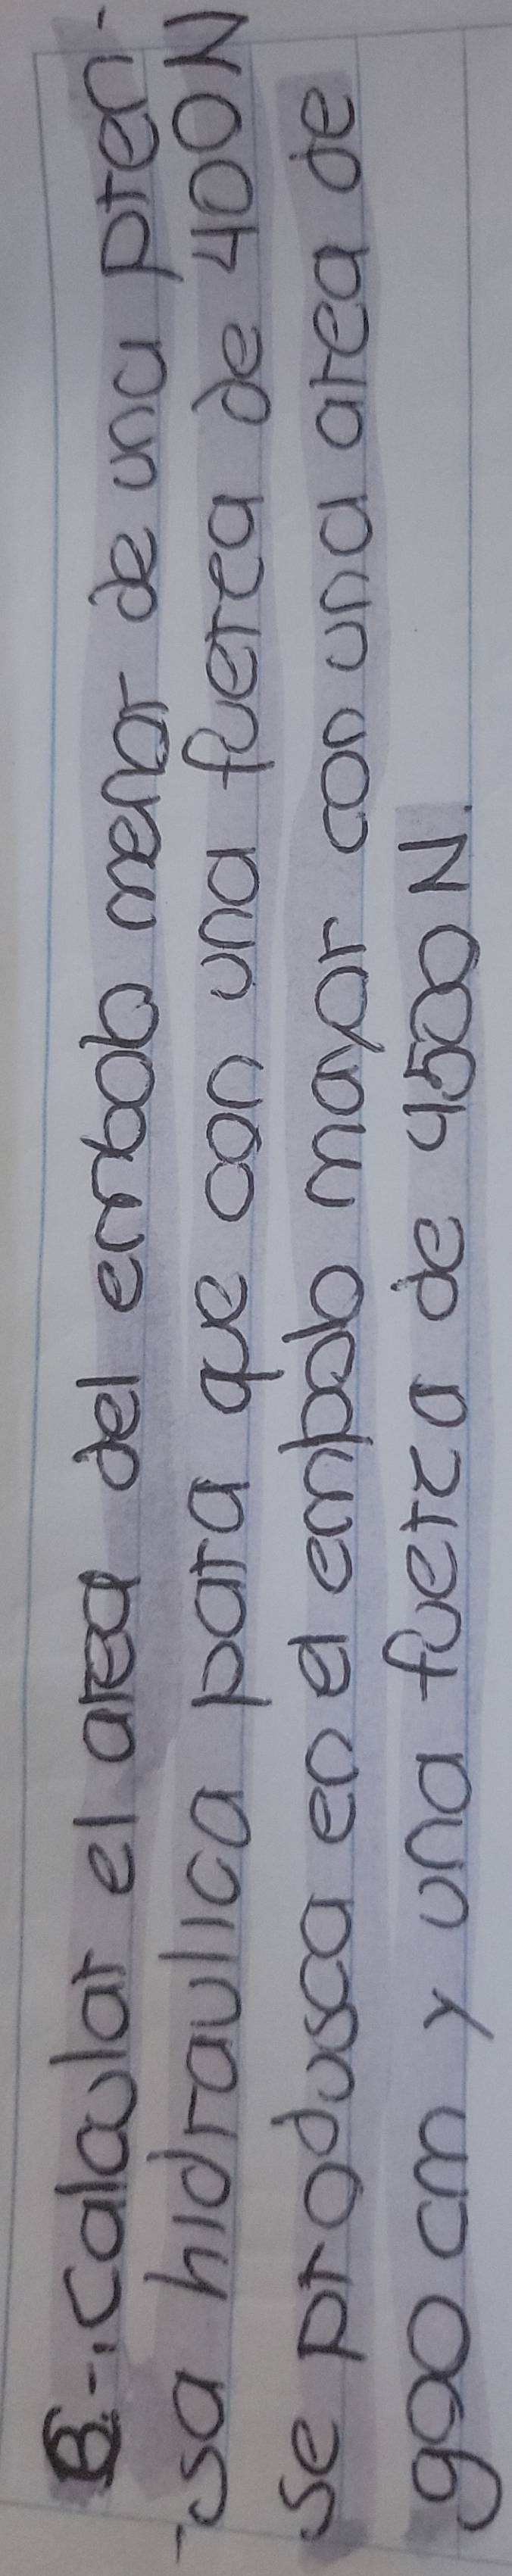 B.-. Calcular el area del embolo menor de una pren-
-sa hidraulica para que con una fuerea de 400N
se produsca en el empolo mayor con una area de
900 cm y una fuerza de 4500 N.